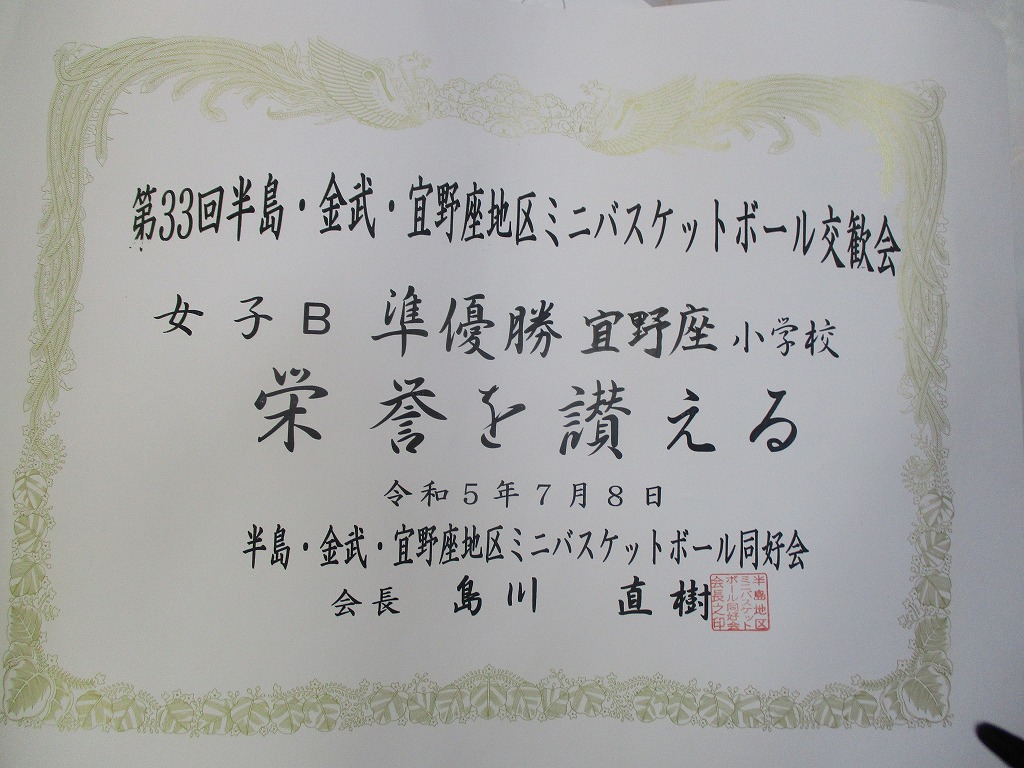 第33回半島・金武・宜野座地区ミニバスケットボール交歓会
女子B 準優勝 宜野座小学校
栄誉を讃える
令和5年7月8日
半島・金武・宜野座地区ミニバスケットボール同好会
会長 島川 直樹
半島地区
ミニバスケット
ボール同好会
会長之印